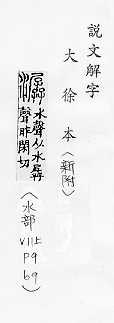 説文解字
大徐本(新附)
潺 水聲从水孱
聲昨閑切
(水部 VII上 P9 b9)